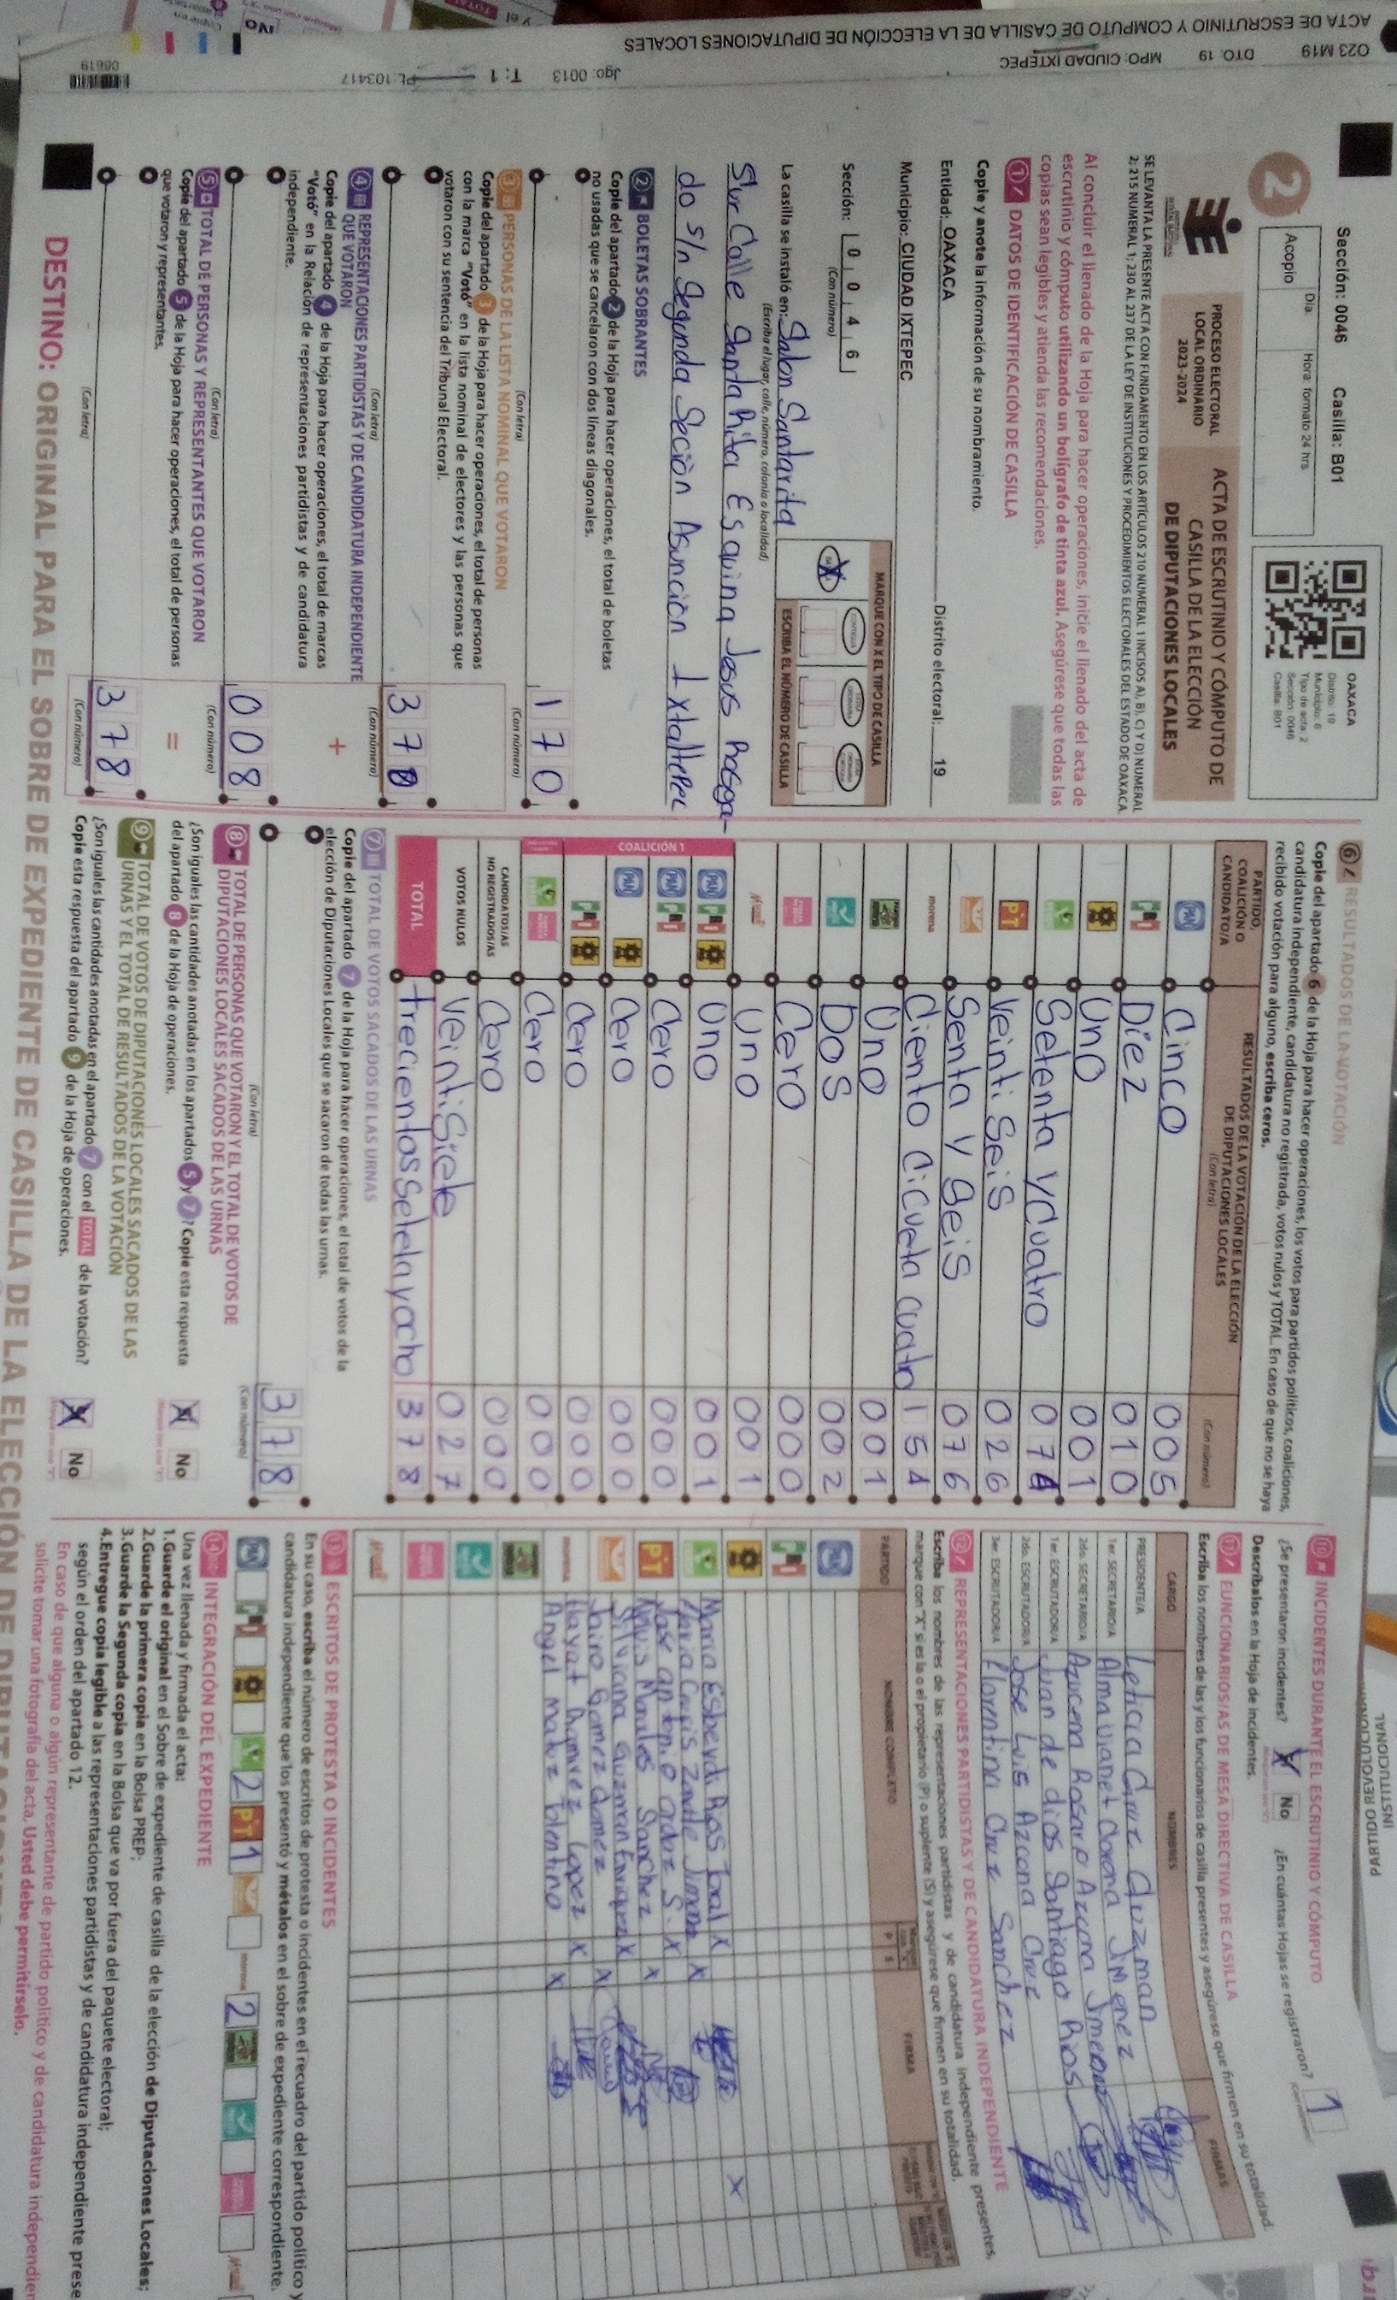 O23 M19 DTO 19 MPO: CIUDAD IXTEPEC Jgo: 0013 T: 1 PL: 103417 06619
ACTA DE ESCRUTINIO Y CÓMPUTO DE CASILLA DE LA ELECCIÓN DE DIPUTACIONES LOCALES
Sección: 0046 Casilla: B01
2
Acopio
Día:
Hora: formato 24 hrs
OAXACA
Distrito: 19
Municipio: 6
Tipo de acta: 2
Sección: 0046
Casilla: B01
PROCESO ELECTORAL
LOCAL ORDINARIO
2023-2024
ACTA DE ESCRUTINIO Y CÓMPUTO DE
CASILLA DE LA ELECCIÓN
DE DIPUTACIONES LOCALES
SE LEVANTA LA PRESENTE ACTA CON FUNDAMENTO EN LOS ARTÍCULOS 210 NUMERAL 1 INCISOS A), B), C) Y D) NUMERAL
2; 215 NUMERAL 1; 230 AL 237 DE LA LEY DE INSTITUCIONES Y PROCEDIMIENTOS ELECTORALES DEL ESTADO DE OAXACA
Al concluir el llenado de la Hoja para hacer operaciones, inicie el llenado del acta de
escrutinio y cómputo utilizando un bolígrafo de tinta azul. Asegúrese que todas las
copias sean legibles y atienda las recomendaciones.
1 DATOS DE IDENTIFICACIÓN DE CASILLA
Copie y anote la información de su nombramiento.
Entidad: OAXACA Distrito electoral: 19
Municipio: CIUDAD IXTEPEC
Sección: 0 0 4 6
(Con número)
MARQUE CON X EL TIPO DE CASILLA
X
ESCRIBA EL NÚMERO DE CASILLA
La casilla se instaló en: Salon Santarita
(Escriba el lugar, calle, número, colonia o localidad)
Sur Calle Santa Rita Esquina Jesus Rosga-
do s/n Segunda Seción Asunción Ixtaltepec
2 BOLETAS SOBRANTES
Copie del apartado 2 de la Hoja para hacer operaciones, el total de boletas
no usadas que se cancelaron con dos líneas diagonales.
170
(Con letra)
(Con número)
3 PERSONAS DE LA LISTA NOMINAL QUE VOTARON
Copie del apartado 3 de la Hoja para hacer operaciones, el total de personas
con la marca "Votó" en la lista nominal de electores y las personas que
votaron con su sentencia del Tribunal Electoral.
370
(Con letra)
(Con número)
4 REPRESENTACIONES PARTIDISTAS Y DE CANDIDATURA INDEPENDIENTE
QUE VOTARON
Copie del apartado 4 de la Hoja para hacer operaciones, el total de marcas
"Votó" en la Relación de representaciones partidistas y de candidatura
independiente.
+
008
(Con letra)
(Con número)
5 TOTAL DE PERSONAS Y REPRESENTANTES QUE VOTARON
Copie del apartado 5 de la Hoja para hacer operaciones, el total de personas
que votaron y representantes.
=
378
(Con letra)
(Con número)
6 RESULTADOS DE LA VOTACIÓN
Copie del apartado 6 de la Hoja para hacer operaciones, los votos para partidos políticos, coaliciones,
candidatura independiente, candidatura no registrada, votos nulos y TOTAL. En caso de que no se haya
recibido votación para alguno, escriba ceros.
PARTIDO,
COALICIÓN O
CANDIDATO/A
RESULTADOS DE LA VOTACIÓN DE LA ELECCIÓN
DE DIPUTACIONES LOCALES
(Con letra)
(Con número)
PAN Cinco 005
PRI Diez 010
Uno 001
Setenta y Cuatro 074
PT Veinti Seis 026
Senta y Seis 076
morena Ciento Cicueta cuatro 154
Uno 001
Dos 002
Cero 000
Uno 001
COALICIÓN 1
PAN PRI Uno 001
PAN PRI Cero 000
PAN Cero 000
PRI Cero 000
Cero 000
CANDIDATOS/AS
NO REGISTRADOS/AS Cero 000
VOTOS NULOS Veinti Siete 027
TOTAL trecientos Setetayocho 378
7 TOTAL DE VOTOS SACADOS DE LAS URNAS
Copie del apartado 7 de la Hoja para hacer operaciones, el total de votos de la
elección de Diputaciones Locales que se sacaron de todas las urnas.
378
(Con letra)
(Con número)
8 TOTAL DE PERSONAS QUE VOTARON Y EL TOTAL DE VOTOS DE
DIPUTACIONES LOCALES SACADOS DE LAS URNAS
¿Son iguales las cantidades anotadas en los apartados 5 y 7? Copie esta respuesta
del apartado 8 de la Hoja de operaciones.
X No
9 TOTAL DE VOTOS DE DIPUTACIONES LOCALES SACADOS DE LAS
URNAS Y EL TOTAL DE RESULTADOS DE LA VOTACIÓN
¿Son iguales las cantidades anotadas en el apartado 7 con el TOTAL de la votación?
Copie esta respuesta del apartado 9 de la Hoja de operaciones.
X No
10 INCIDENTES DURANTE EL ESCRUTINIO Y CÓMPUTO
¿Se presentaron incidentes? X No ¿En cuántas Hojas se registraron? 1
Descríbalos en la Hoja de incidentes.
11 FUNCIONARIOS/AS DE MESA DIRECTIVA DE CASILLA
Escriba los nombres de las y los funcionarios de casilla presentes y asegúrese que firmen en su totalidad.
CARGO NOMBRES FIRMAS
PRESIDENTE/A Leticia Cruz Guzman
1er. SECRETARIO/A Alma Vianet Corona Jimenez
2do. SECRETARIO/A Azucena Rosario Azcona Jimenez
1er. ESCRUTADOR/A Juan de dios Santiago Rios
2do. ESCRUTADOR/A Jose Luis Azcona Cruz
3er. ESCRUTADOR/A Florentina Cruz Sanchez
12 REPRESENTACIONES PARTIDISTAS Y DE CANDIDATURA INDEPENDIENTE
Escriba los nombres de las representaciones partidistas y de candidatura independiente presentes,
marque con "X" si es la o el propietario (P) o suplente (S) y asegúrese que firmen en su totalidad.
PARTIDO NOMBRE COMPLETO P S FIRMA
PAN
PRI
Maria Esbeydi Rios Toal X X
Maria Crucis Zarate Jimenez X
PT Jose antonio ordaz S. X
Morales Sanchez X
Guzman Enriquez X
Jairo Gomez Gomez X
morena Nayat Ramirez Lopez X
Angel Matuz blentino X
13 ESCRITOS DE PROTESTA O INCIDENTES
En su caso, escriba el número de escritos de protesta o incidentes en el recuadro del partido político y
candidatura independiente que los presentó y métalos en el sobre de expediente correspondiente.
PAN PRI 2 PT 1 morena 2
14 INTEGRACIÓN DEL EXPEDIENTE
Una vez llenada y firmada el acta:
1.Guarde el original en el Sobre de expediente de casilla de la elección de Diputaciones Locales;
2.Guarde la primera copia en la Bolsa PREP;
3.Guarde la Segunda copia en la Bolsa que va por fuera del paquete electoral;
4.Entregue copia legible a las representaciones partidistas y de candidatura independiente prese
según el orden del apartado 12.
En caso de que alguna o algún representante de partido político y de candidatura independien
solicite tomar una fotografía del acta, Usted debe permitírselo.
DESTINO: ORIGINAL PARA EL SOBRE DE EXPEDIENTE DE CASILLA DE LA ELECCIÓN DE DIPUTACIONES
PARTIDO REVOLUCIONARIO
INSTITUCIONAL
NO